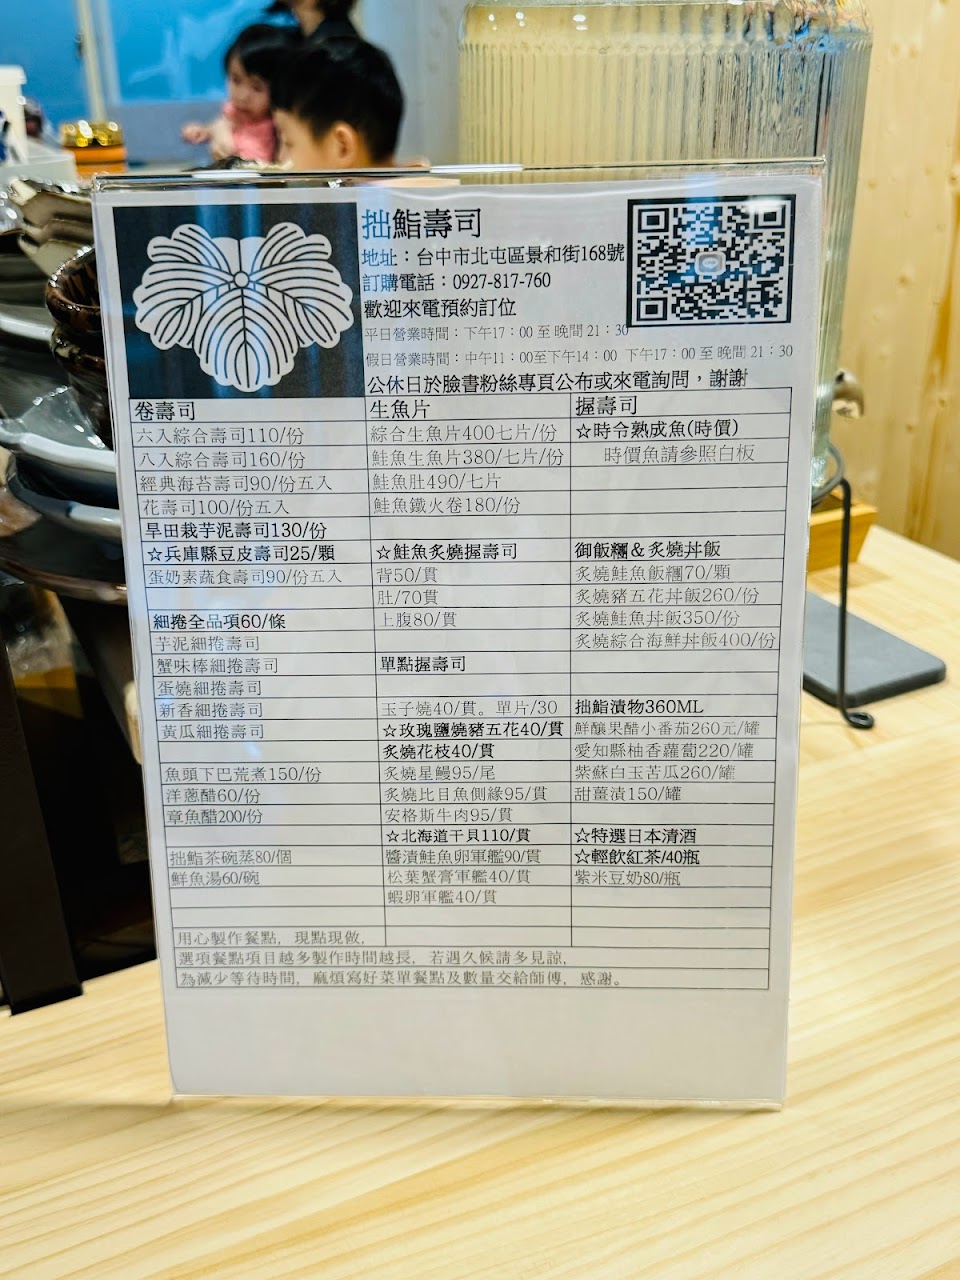 拙鮨壽司
地址：台中市北屯區景和街168號
訂購電話：0927-817-760
歡迎來電預約訂位
平日營業時間：下午17：00 至 晚間 21：30
假日營業時間：中午11：00至下午14：00 下午17：00 至 晚間 21：30
公休日於臉書粉絲專頁公布或來電詢問，謝謝
卷壽司
六入綜合壽司110/份
八入綜合壽司160/份
經典海苔壽司90/份五入
花壽司100/份五入
旱田栽芋泥壽司130/份
☆兵庫縣豆皮壽司25/顆
蛋奶素蔬食壽司90/份五入
細捲全品項60/條
芋泥細捲壽司
蟹味棒細捲壽司
蛋燒細捲壽司
新香細捲壽司
黃瓜細捲壽司
魚頭下巴荒煮150/份
洋蔥醋60/份
章魚醋200/份
拙鮨茶碗蒸80/個
鮮魚湯60/碗
生魚片
綜合生魚片400七片/份
鮭魚生魚片380/七片/份
鮭魚肚490/七片
鮭魚鐵火卷180/份
☆鮭魚炙燒握壽司
背50/貫
肚/70貫
上腹80/貫
單點握壽司
玉子燒40/貫。單片/30
☆玫瑰鹽燒豬五花40/貫
炙燒花枝40/貫
炙燒星鰻95/尾
炙燒比目魚側緣95/貫
安格斯牛肉95/貫
☆北海道干貝110/貫
醬漬鮭魚卵軍艦90/貫
松葉蟹膏軍艦40/貫
蝦卵軍艦40/貫
握壽司
☆時令熟成魚(時價)
時價魚請參照白板
御飯糰＆炙燒丼飯
炙燒鮭魚飯糰70/顆
炙燒豬五花丼飯260/份
炙燒鮭魚丼飯350/份
炙燒綜合海鮮丼飯400/份
拙鮨漬物360ML
鮮釀果醋小番茄260元/罐
愛知縣柚香蘿蔔220/罐
紫蘇白玉苦瓜260/罐
甜薑漬150/罐
☆特選日本清酒
☆輕飲紅茶/40瓶
紫米豆奶80/瓶
用心製作餐點，現點現做，
選項餐點項目越多製作時間越長，若遇久候請多見諒，
為減少等待時間，麻煩寫好菜單餐點及數量交給師傅，感謝。